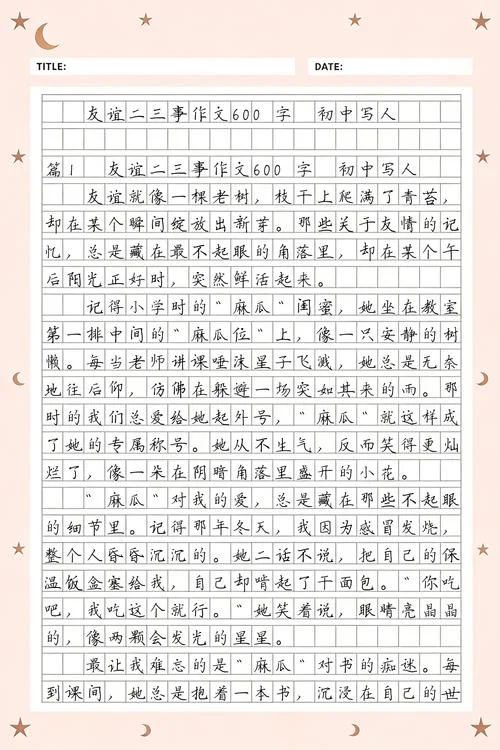 TITLE: DATE:
友谊二三事作文600 字 初中写人
篇1 友谊二三事作文600 字 初中写人
友谊就像一棵老树，枝干上爬满了青苔，
却在某个瞬间绽放出新芽。那些关于友情的记
忆，总是藏在最不起眼的角落里，却在某个午
后阳光正好时，突然鲜活起来。
记得小学时的"麻瓜"闺蜜，她坐在教室
第一排中间的"麻瓜位"上，像一只安静的树
懒。每当老师讲课唾沫星子飞溅，她总是无奈
地往后仰，仿佛在躲避一场突如其来的雨。那
时的我们总爱给她起外号，"麻瓜"就这样成
了她的专属称号。她从不生气，反而笑得更灿
烂了，像一朵在阴暗角落里盛开的小花。
"麻瓜"对我的爱，总是藏在那些不起眼
的细节里。记得那年冬天，我因为感冒发烧，
整个人昏昏沉沉的。她二话不说，把自己的保
温饭盒塞给我，自己却啃起了干面包。"你吃
吧，我吃这个就行。"她笑着说，眼睛亮晶晶
的，像两颗会发光的星星。
最让我难忘的是"麻瓜"对书的痴迷。每
到课间，她总是抱着一本书，沉浸在自己的世